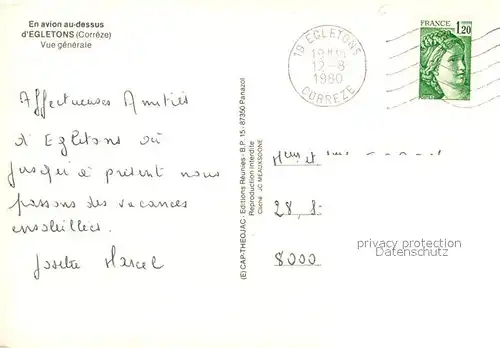 En avion au-dessus
d'EGLETONS (Corrèze)
Vue générale
19 EGLETONS
12-8
1980
CORREZE
FRANCE
1,20
Affectueuses Amitiés
d'Egletons où
jusqu'à présent nous
passons des vacances
ensoleillées.
Josette Marcel
(E) CAP-THEOJAC - Editions Réunies - B.P. 15 - 87350 Panazol
Reproduction interdite
Cliché JC MEAUXSOONE
et
28,
8000
privacy protection
Datenschutz